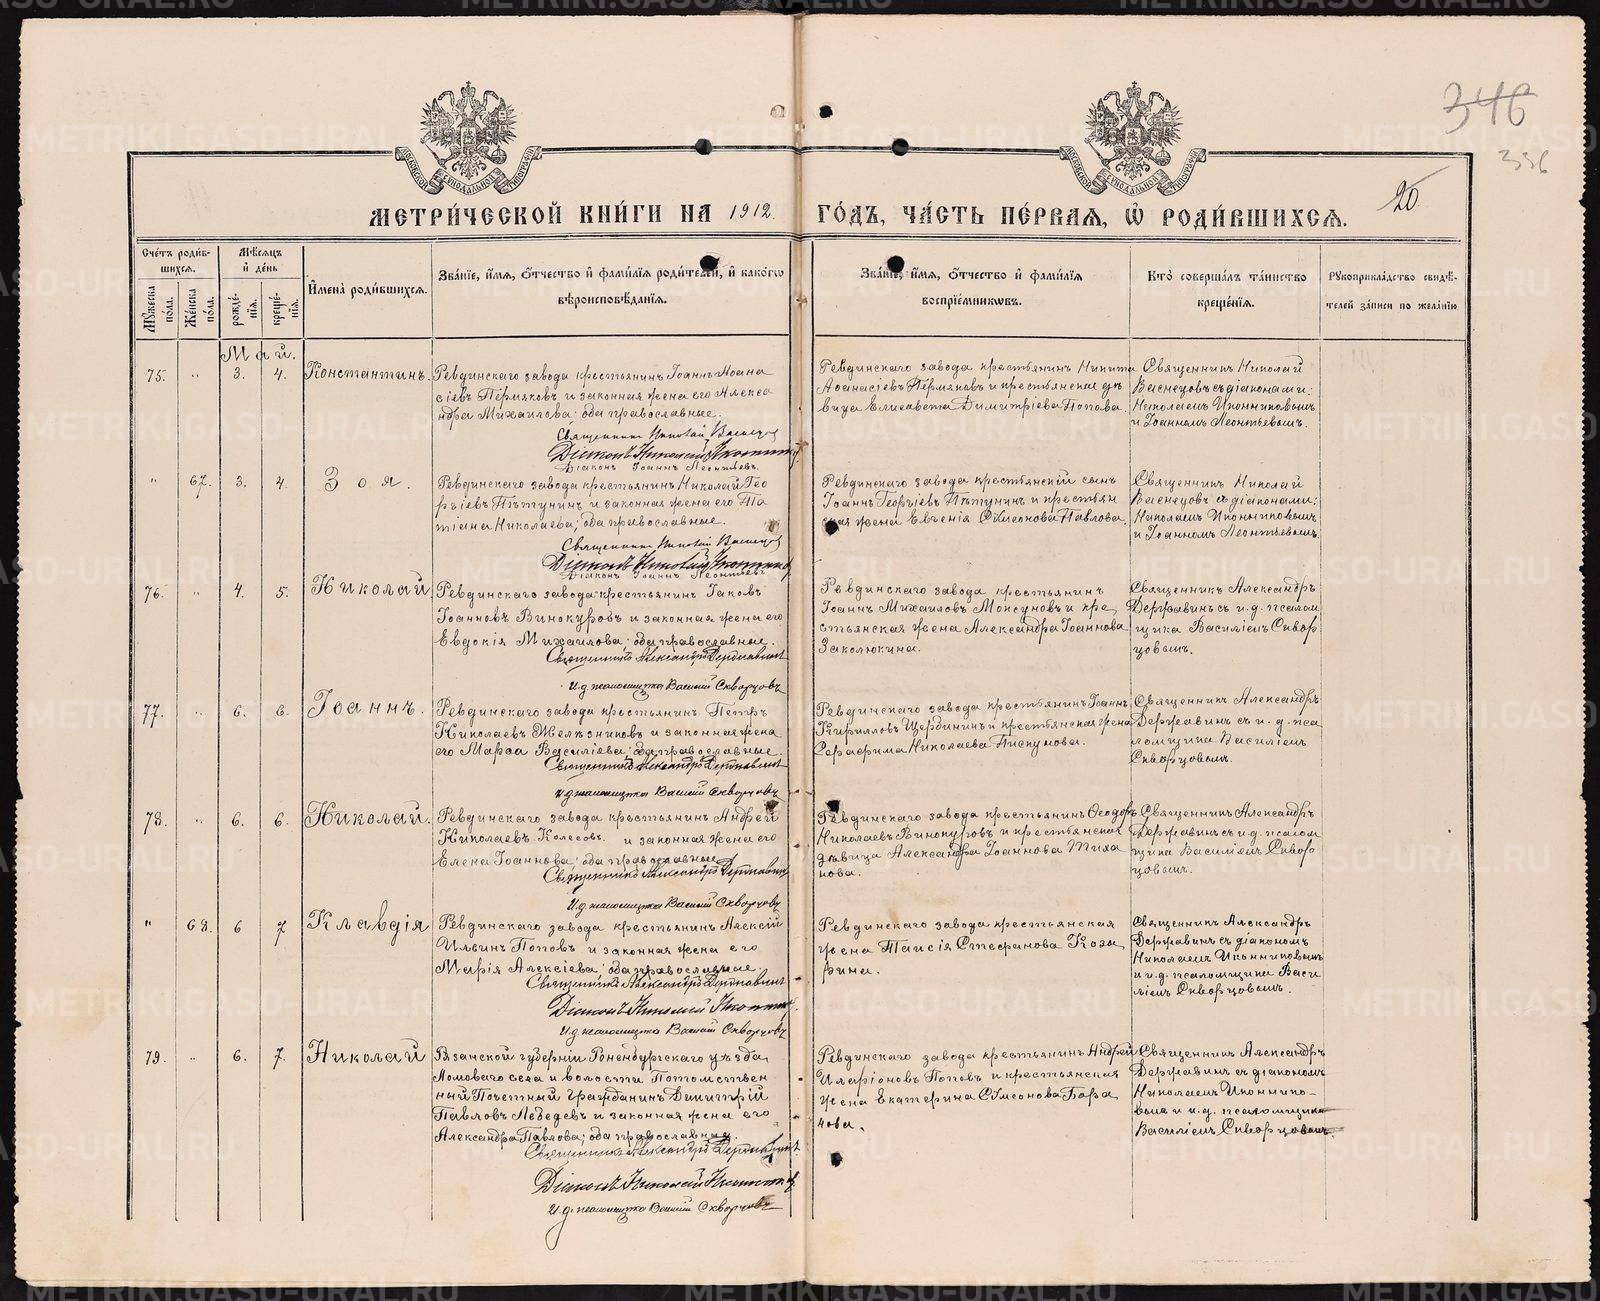 346
336
20
МЕТРИ́ЧЕСКОЙ КНИ́ГИ НА 1912 ГО́ДЪ, ЧА́СТЬ ПЕ́РВАЯ, Ѡ҆ РОДИ́ВШИХСЯ.
Сче́тъ роди́в-
шихся.
Мꙋ́жеска по́ла.
Же́нска по́ла.
Мѣ́сяцъ и҆ де́нь
рожде́нїя.
креще́нїя.
И҆мена̀ роди́вшихся.
Зва́нїе, и҆́мя, ѻ҆́тчество и҆ фами́лїя роди́телей, и҆ како́гѡ
вѣроисповѣ́данїя.
Зва́нїе, и҆́мя, ѻ҆́тчество и҆ фами́лїя
воспрїе́мникѡвъ.
Кто̀ соверша́лъ та́инство
креще́нїя.
Рꙋкоприкла́дство свидѣ́-
телей за́писи по жела́нїю
Май.
75. " 3. 4. Константинъ.
Ревдинскаго завода крестьянинъ Іоаннъ Аѳана
сіевъ Пермяковъ и законная жена его Алекса
ндра Михаилова; оба православные.
Священникъ Николай Васнецов
Діаконъ Николай Иконников
Діаконъ Іоаннъ Леонтьевъ.
Ревдинскаго завода крестьянинъ Никита
Аѳанасіевъ Пермяковъ и крестьянская дѣ
вица Елисавета Димитріева Попова.
Священникъ Николай
Васнецовъ съ діаконами:
Николаемъ Иконниковымъ
и Іоанномъ Леонтьевымъ.
" 67. 3. 4. Зоя.
Ревдинскаго завода крестьянинъ Николай Гео
ргіевъ Пѣтунинъ и законная жена его Та
тіана Николаева; оба православные.
Священникъ Николай Васнецов
Діаконъ Николай Иконников
Діаконъ Іоаннъ Леонтьевъ
Ревдинскаго завода крестьянскій сынъ
Іоаннъ Георгіевъ Пѣтунинъ и крестьян
ская жена Евгенія Сѷмеонова Павлова.
Священникъ Николай
Васнецовъ съ діаконами:
Николаемъ Иконниковымъ
и Іоанномъ Леонтьевымъ.
76. " 4. 5. Николай
Ревдинскаго завода крестьянинъ Іаковъ
Іоанновъ Винокуровъ и законная жена его
Евдокія Михаилова; оба православные.
Священникъ Александръ Державинъ
И.д. псаломщика Василій Скворцовъ
Ревдинскаго завода крестьянинъ
Іоаннъ Михаиловъ Моксуновъ и кре
стьянская жена Александра Іоаннова
Заколюкина.
Священникъ Александръ
Державинъ съ и.д. псалом
щика Василіемъ Сквор
цовымъ.
77. " 6. 6. Іоаннъ.
Ревдинскаго завода крестьянинъ Петръ
Николаевъ Шелконоговъ и законная жена
его Марѳа Василіева; оба православные.
Священникъ Александръ Державинъ
и.д. псаломщика Василій Скворцовъ
Ревдинскаго завода крестьянинъ Іоаннъ
Кирилловъ Щербининъ и крестьянская жена
Серафима Николаева Пискунова.
Священникъ Александръ
Державинъ съ и.д. пса
ломщика Василіемъ
Скворцовымъ.
78. " 6. 6. Николай.
Ревдинскаго завода крестьянинъ Андрей
Николаевъ Колесовъ и законная жена его
Елена Іоаннова; оба православные
Священникъ Александръ Державинъ
И.д. псаломщика Василій Скворцовъ
Ревдинскаго завода крестьянинъ Ѳеодоръ
Николаевъ Винокуровъ и крестьянская
дѣвица Александра Іоаннова Тиха
нова.
Священникъ Александръ
Державинъ съ и.д. псалом
щика Василіемъ Сквор
цовымъ.
" 68. 6 7 Клавдія
Ревдинскаго завода крестьянинъ Алексій
Ильинъ Поповъ и законная жена его
Марія Алексіева; оба православные
Священникъ Александръ Державинъ
Діаконъ Николай Иконников
И.д. псаломщика Василій Скворцовъ
Ревдинскаго завода крестьянская
жена Таисія Стефанова Коза
рина.
Священникъ Александръ
Державинъ съ діакономъ
Николаемъ Иконниковымъ
и и.д. псаломщика Васи
ліемъ Скворцовымъ.
79. " 6. 7. Николай
Рязанской губерніи Роненбургскаго уѣзда,
Ломоваго села и волости Потомствен
ный Почетный Гражданинъ Димитрій
Павловъ Лебедевъ и законная жена его
Александра Павлова; оба православные.
Священникъ Александръ Державинъ
Діаконъ Николай Иконников
И.д. псаломщика Василій Скворцовъ
Ревдинскаго завода крестьянинъ Андрей
Иларіоновъ Поповъ и крестьянская
жена Екатерина Сѷмеонова Бара
нова.
Священникъ Александръ
Державинъ съ діакономъ
Николаемъ Иконнико-
вымъ и и.д. псаломщика
Василіемъ Скворцовымъ.